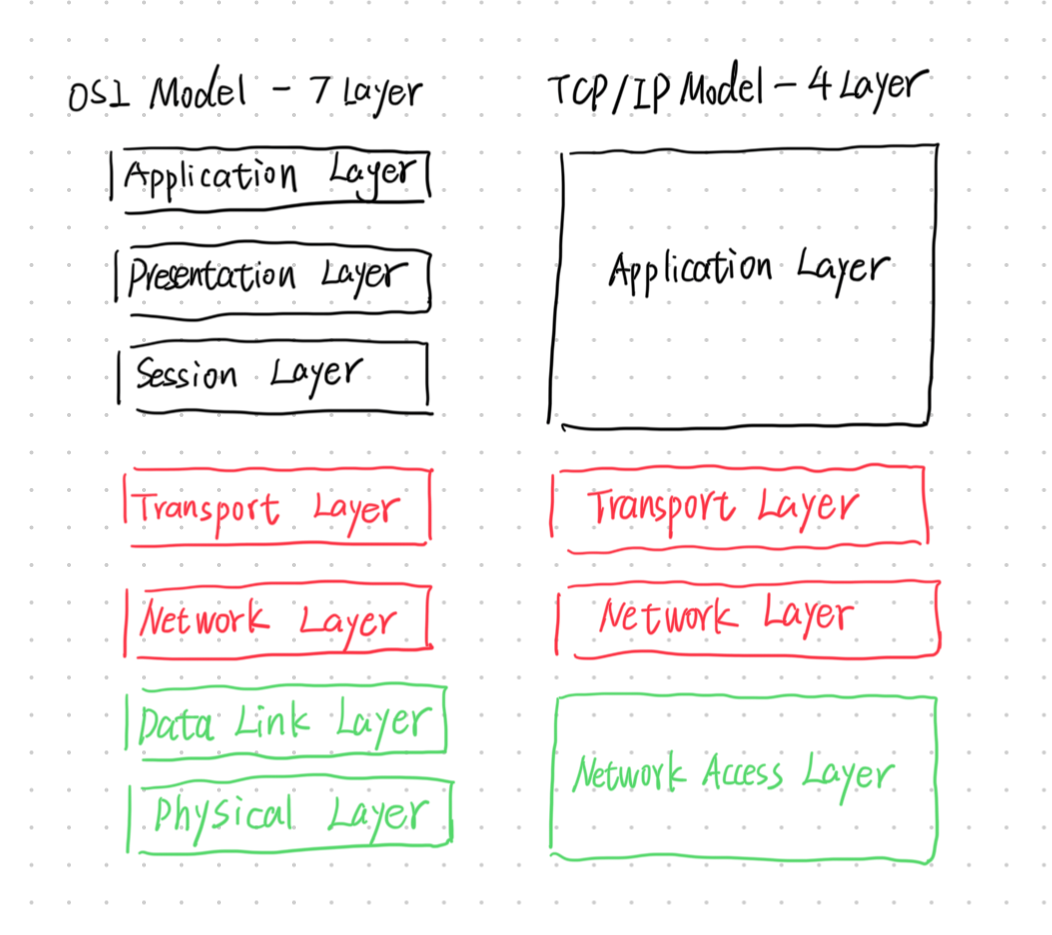 OSI Model - 7 Layer
Application Layer
Presentation Layer
Session Layer
Transport Layer
Network Layer
Data Link Layer
Physical Layer
TCP/IP Model - 4 Layer
Application Layer
Transport Layer
Network Layer
Network Access Layer